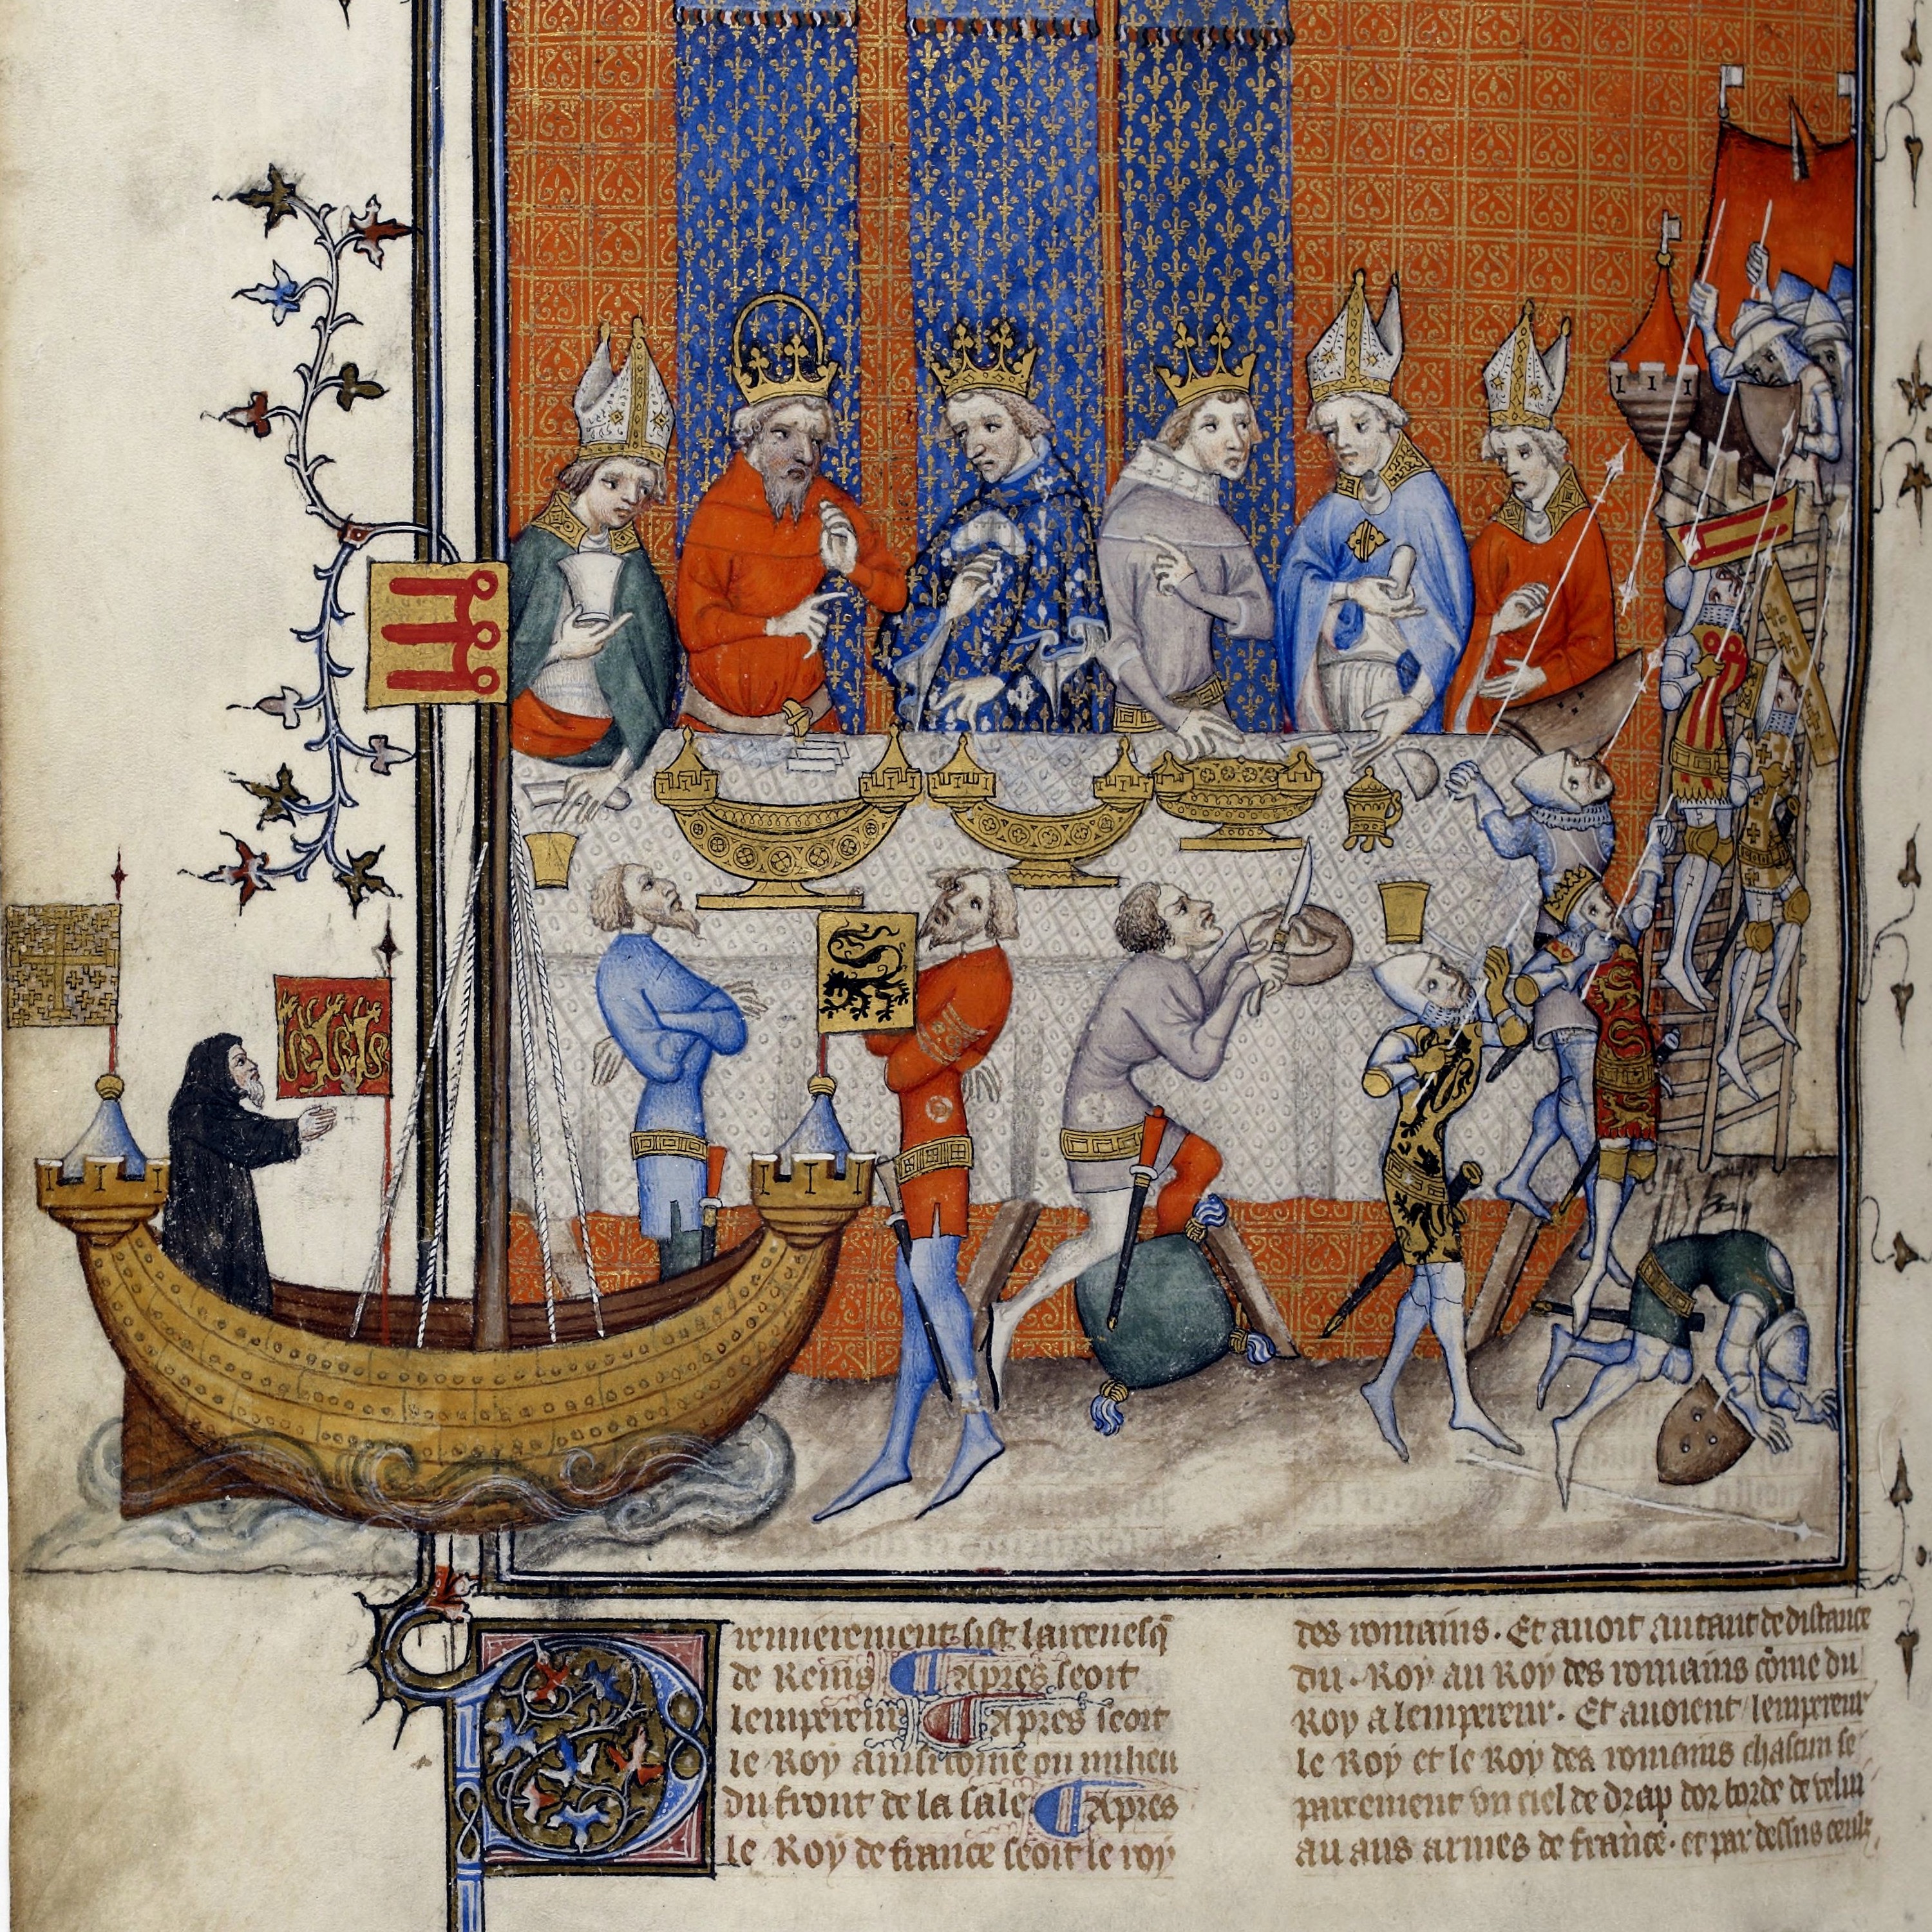 Premierement sist larcevesq̃
de Reims ¶ Apres seoit
lempereur ¶ Apres seoit
le Roy ainsi cõme ou milieu
du front de la sale ¶ Apres
le Roy de france seoit le roy
des romains. Et avoit autant de distance
du. Roy au Roy des romains cõme du
Roy a lempereur. Et avoient lempereur
le Roy et le Roy des romains chascun se
parement un ciel de drap dor borde de velui
au aus armes de france. et par dessus ceulx